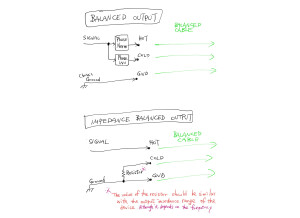 BALANCED OUTPUT
BALANCED
CABLE
SIGNAL
Phase
HOT
Phase
COLD
GND
Ground
IMPEDANCE BALANCED OUTPUT
SIGNAL
HOT
BALANCED
CABLE
COLD
Resistor*
Ground
GND
* The value of the resistor should be similar
with the output impedance range of the
device although it depends on the frequency